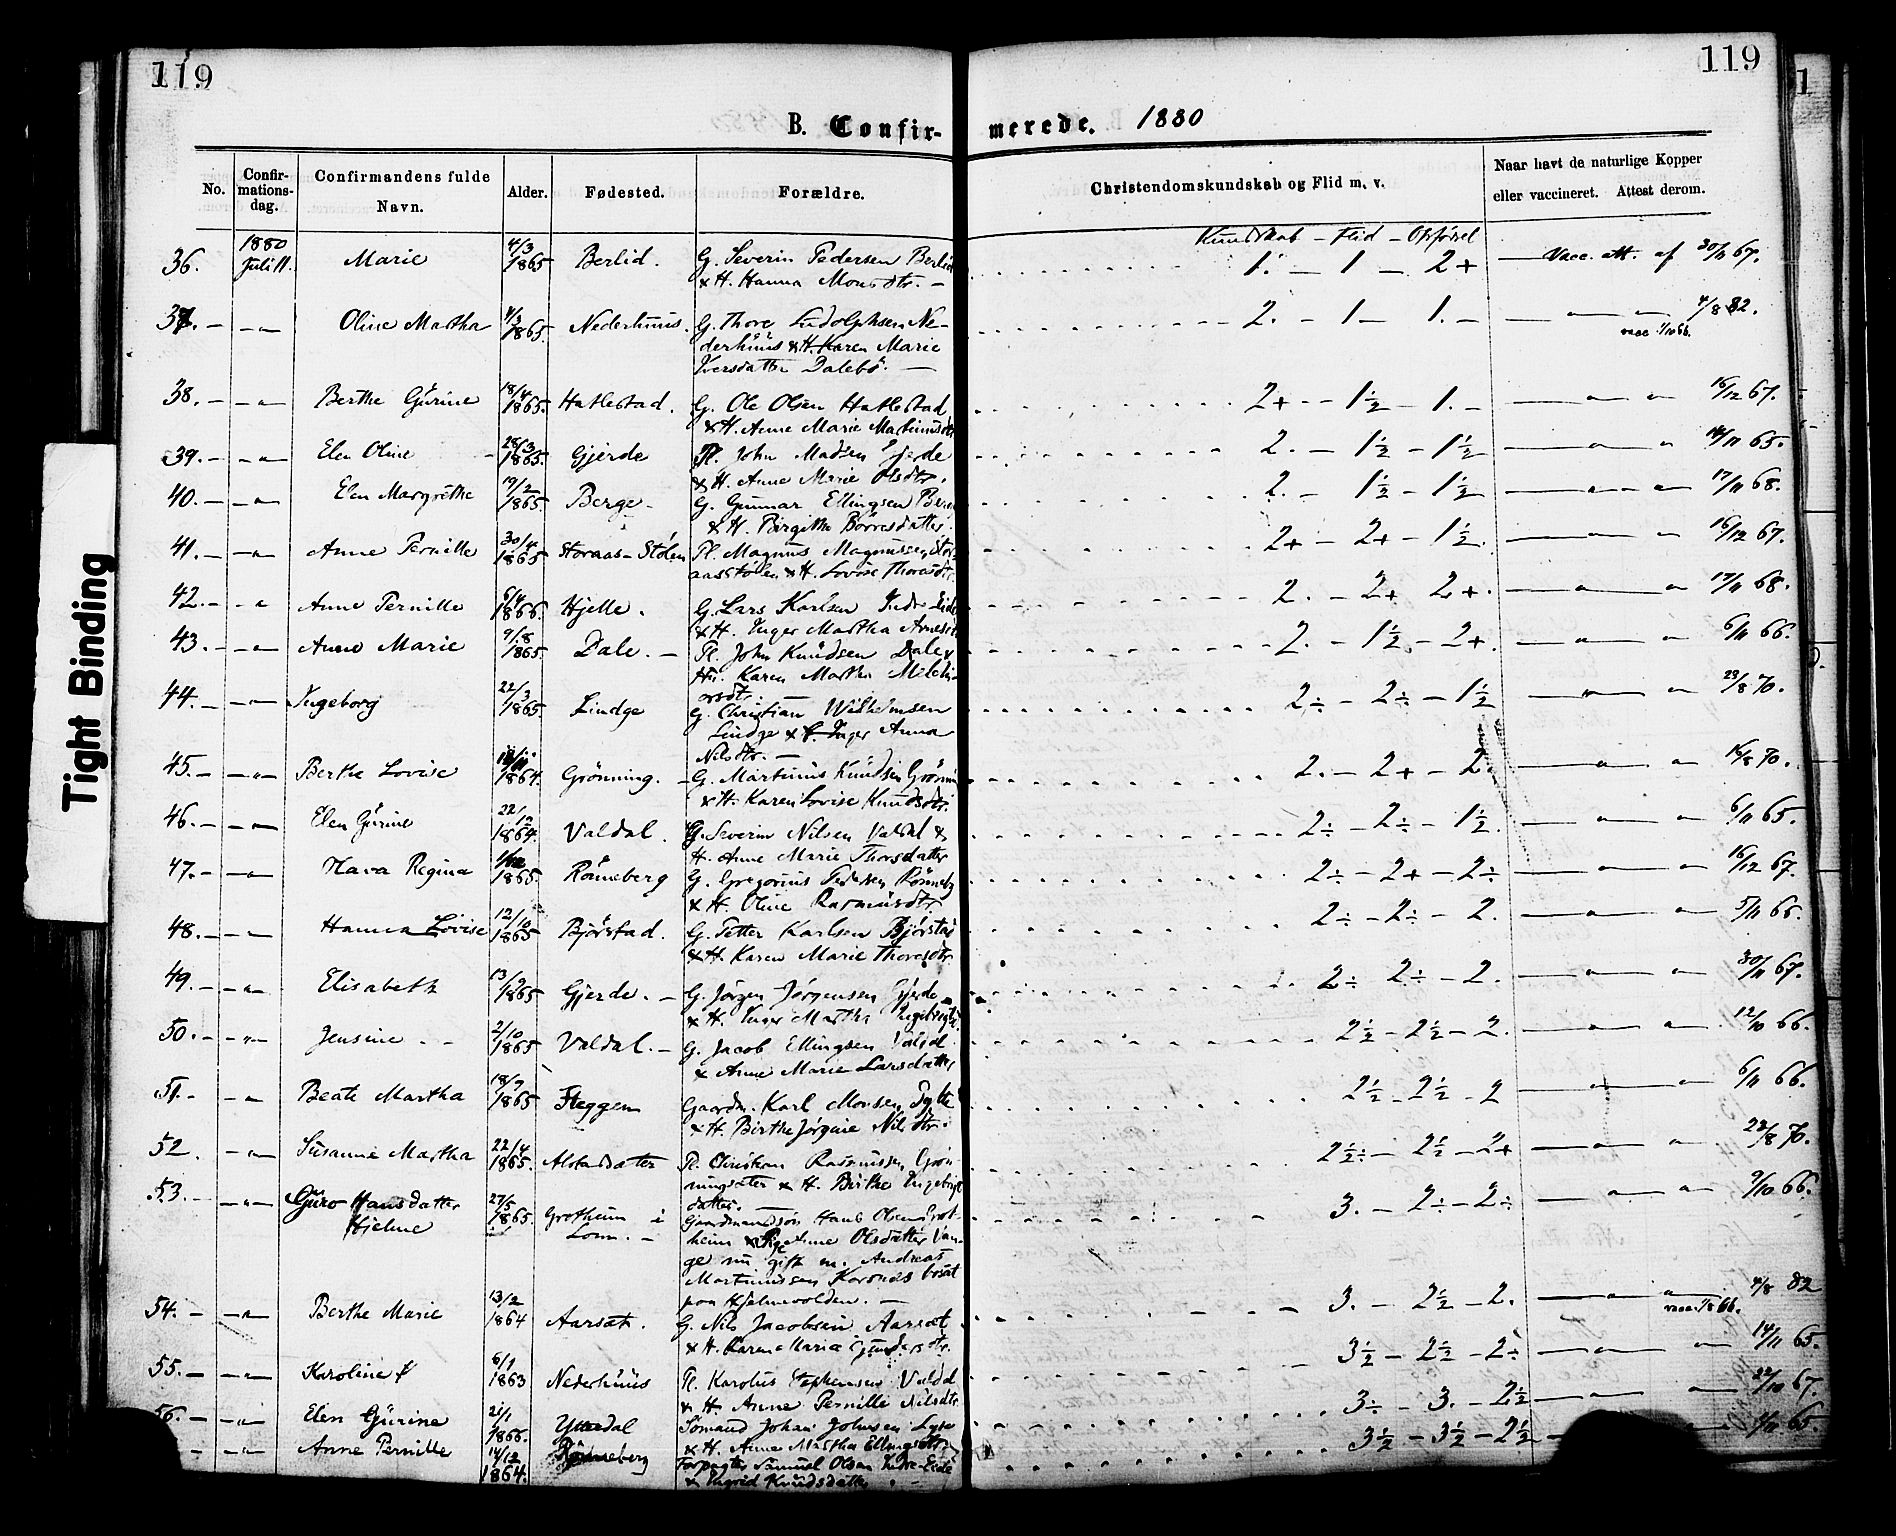 119
119
1
B. Confir- merede. 1880
No.
Confir-
mations-
dag.
Confirmandens fulde
Navn.
Alder.
Fødested.
Forældre.
Christendomskundskab og Flid m. v.
Naar havt de naturlige Kopper
eller vaccineret. Attest derom.
Kundskab – Flid – Opførsel
36. 1880 Juli 11. Marie 4/3 1865 Berlid. G. Severin Pedersen Berlid 1. – 1 – 2+ Vacc. att. af 30/11 67.
& H. Hanna Monsdtr. –
37. – – " – Oline Martha 4/3 1865. Nederhuus. G. Thore Ludolphsen Ne- 2. – 1 – 1. – 4/8 82.
derhuus & H. Karen Marie vacc
Iversdatter Dalebø. –
38. – – " – Berthe Gurine 18/4 1865. Hatlestad. G. Ole Olsen Hatlestad 2+ – 1½ – 1. – 16/12 67.
& H. Anne Marie Martinusdtr
39. – – " – Elen Oline 28/3 1865. Gjerde Pl. John Madsen Gjerde 2. – 1½ – 1½ 14/11 65.
& H. Anne Marie Olsdtr.
40. – – " – Elen Margrethe 19/2 1865. Berge – G. Gunnar Ellingsen Berge 2. – 1½ – 1½ 17/11 68.
& H. Birgitha Børresdatter
41. – – " – Anne Pernille 30/4 1865 Storaas-Stølen Pl. Magnus Magnussen Stor- 2+ – 2+ – 1½. 16/12 67.
aasstølen & H. Lovise Thoresdtr.
42. – – " Anne Pernille 6/4 1866. Hjelle. G. Lars Karlsen Indre Eide 2. – 2+ 2+. 17/11 68.
& H. Inger Martha Arnesdtr
43. – – " – Anne Marie 9/8 1865. Dale. – Pl. John Knudsen Dale & 2. – 1½ – 2+. 6/11 66.
Hu. Karen Martha Melchi-
orsdtr.
44. – " – Ingeborg 22/3 1865. Lindge G. Christian Wilhelmsen 2÷ – 2÷ – 1½ 23/8 70.
Lindge & H. Inger Anna
Nilsdtr. –
45. – – " – Berthe Lovise 1864. Grønning. – G. Martinus Knudsen Grønning 2. – 2+ – 2. 16/8 70.
& H. Karen Lovise Knudsdtr.
46. – – " – Elen Gurine 22/12 1864. Valdal. G. Severin Nilsen Valdal & 2÷ – 2÷ – 1½. 6/11 65.
H. Anne Marie Thorsdatter
47. – – " – Nava Regina 1865. Rønneberg G. Gregorius Pedersen Rønneberg 2÷ – 2+ – 2÷ 16/12 67.
& H. Oline Rasmusdtr.
48. – – " – Hanna Lovise 12/10 1865 Bjørstad. G. Petter Karlsen Bjørstad 2÷ – 2÷ – 2. 5/11 66.
& H. Karen Marie Thoresdtr.
49. – – " – Elisabeth 13/9 1865 Gjerde. – G. Jørgen Jørgensen Gjerde 2÷ 2÷ – 2. 30/11 67.
& H. Inger Martha Ingebrigtsdtr
50. – – " – Jensine – 2/10 1865 Valdal. – G. Jacob Ellingsen Valdal 2½ – 2½ – 2. 12/10 66.
& Anne Marie Larsdatter
51. – – " Beate Martha 18/7 1865 Fleggem Gaardm. Karl Monsen Sylte 2½ – 2½ – 2 6/11 66.
& H. Birthe Jørgine Nilsdtr.
52. – " – Susanne Martha 22/4 1865. Alstadsæter Pl. Christian Rasmussen Grøn- 2½÷ – 2½ – 2+ 23/8 70.
ningsæter & H. Birthe Ingebrigt-
datter. –
53. – – " – Guro Hansdatter Hjelme 27/5 1865. Grotheim i Lom. – Gaardmandssøn Hans Olsen Grot- 3. – 2÷ – 2÷ 9/10 66.
heim & Pige Anne Olsdatter Van-
ge nu gift m. Andreas
Martinussen Korsnes bosat
paa Hjelmevolden. –
54. – – " – Berthe Marie 13/2 1864 Aarsæt. G. Nils Jacobsen Aarsæt 3. – 2½ – 2. 4/8 82
& H. Karen Marie Gundersdtr. vacc. 66.
55. – – " – Karoline 6/1 1863 Nederhuus Pl. Karolus Stephensen Valdal 3½ – 2½ – 2÷ 14/11 65.
& H. Anne Pernille Nilsdtr.
56. – – " – Elen Gurine 21/1 1866. Yttredal Tømand Johan Johnsen 3÷ – 3. – 2½ 22/10 67.
& H. Anne Martha Ellingsdtr.
– " – Anne Pernille 14/12 1864. Rønneberg Forpagter Samuel Olsen Indre-Eide 3½ – 3½ – 2½ 65.
& Ingrid Knudsdatter
Tight Binding